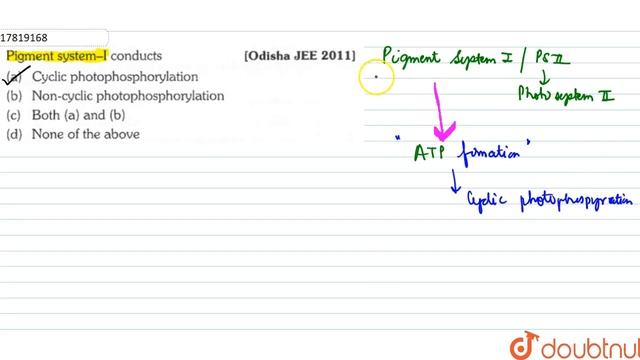 17819168
Pigment system–I conducts [Odisha JEE 2011]
(a) Cyclic photophosphorylation
(b) Non-cyclic photophosphorylation
(c) Both (a) and (b)
(d) None of the above
Pigment System I / PS II
Photosystem II
"ATP formation"
Cyclic
doubtnut